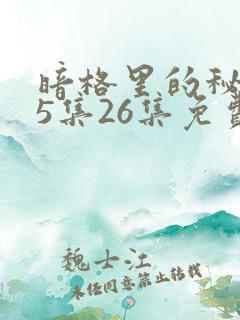 暗格里的秘
5集26集免费
魏士江
未经同意禁止转载